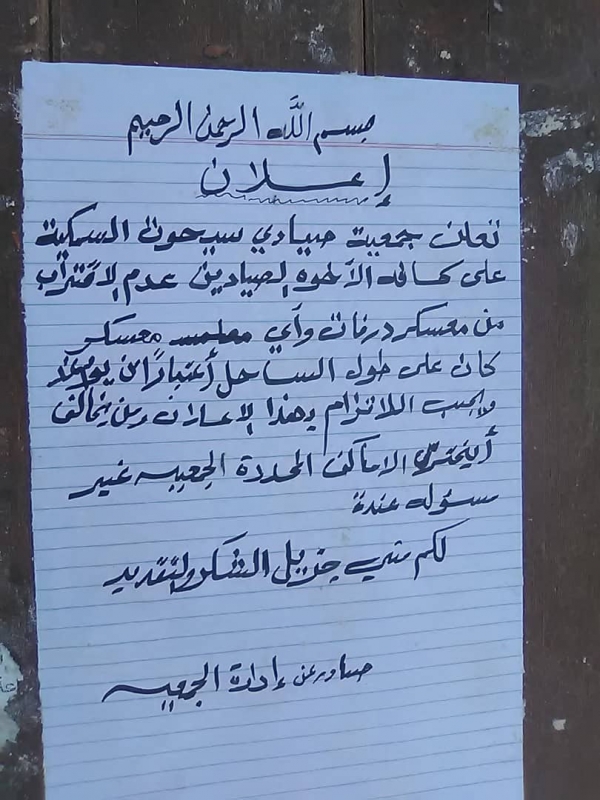 بسم الله الرحمن الرحيم
إعلان
تعلن جمعية صيادي سيحوت السمكية
على كافه الأخوه الصيادين عدم الاقتراب
من معسكر درفات وأي معسكر
كان على طول الساحل أعتباراً من يوم غد
ويجب اللاتزام بهذا الإعلان ومن يخالف
أو يقترب الاماكن المحددة الجمعيه غير
مسؤله عندة
لكم مني جزيل الشكر والتقدير
صادر عن إدارة الجمعيه